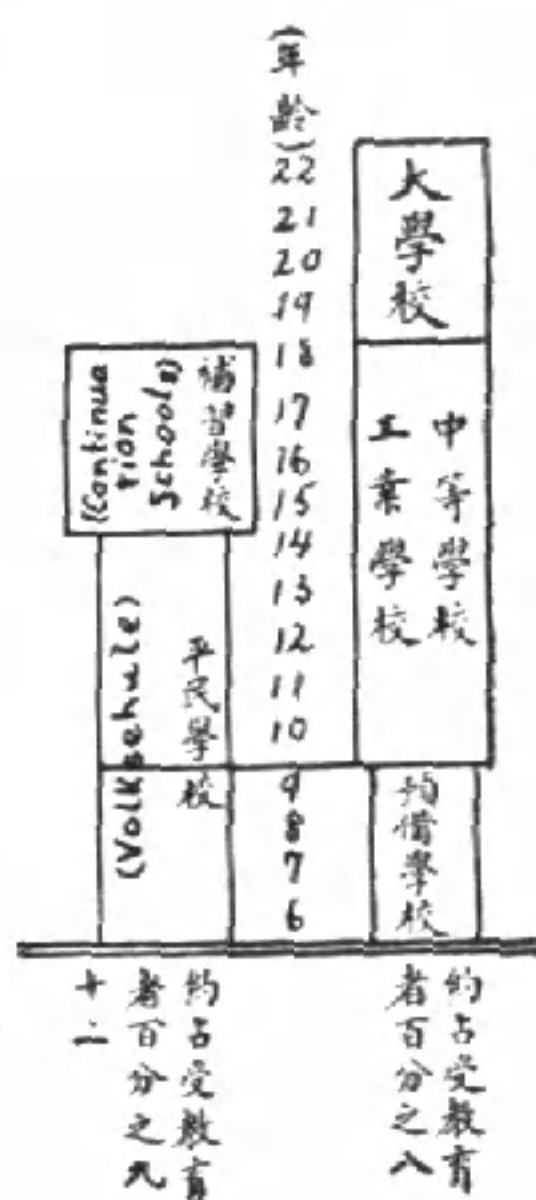 (年齡)
22
21
20
19
18
17
16
15
14
13
12
11
10
9
8
7
6
大學校
中等學校
工業學校
預備學校
補習學校
(Continua
tion
Schools)
平民學校
(Volkschule)
約占受教育
者百分之八
約占受教育
者百分之九
十二